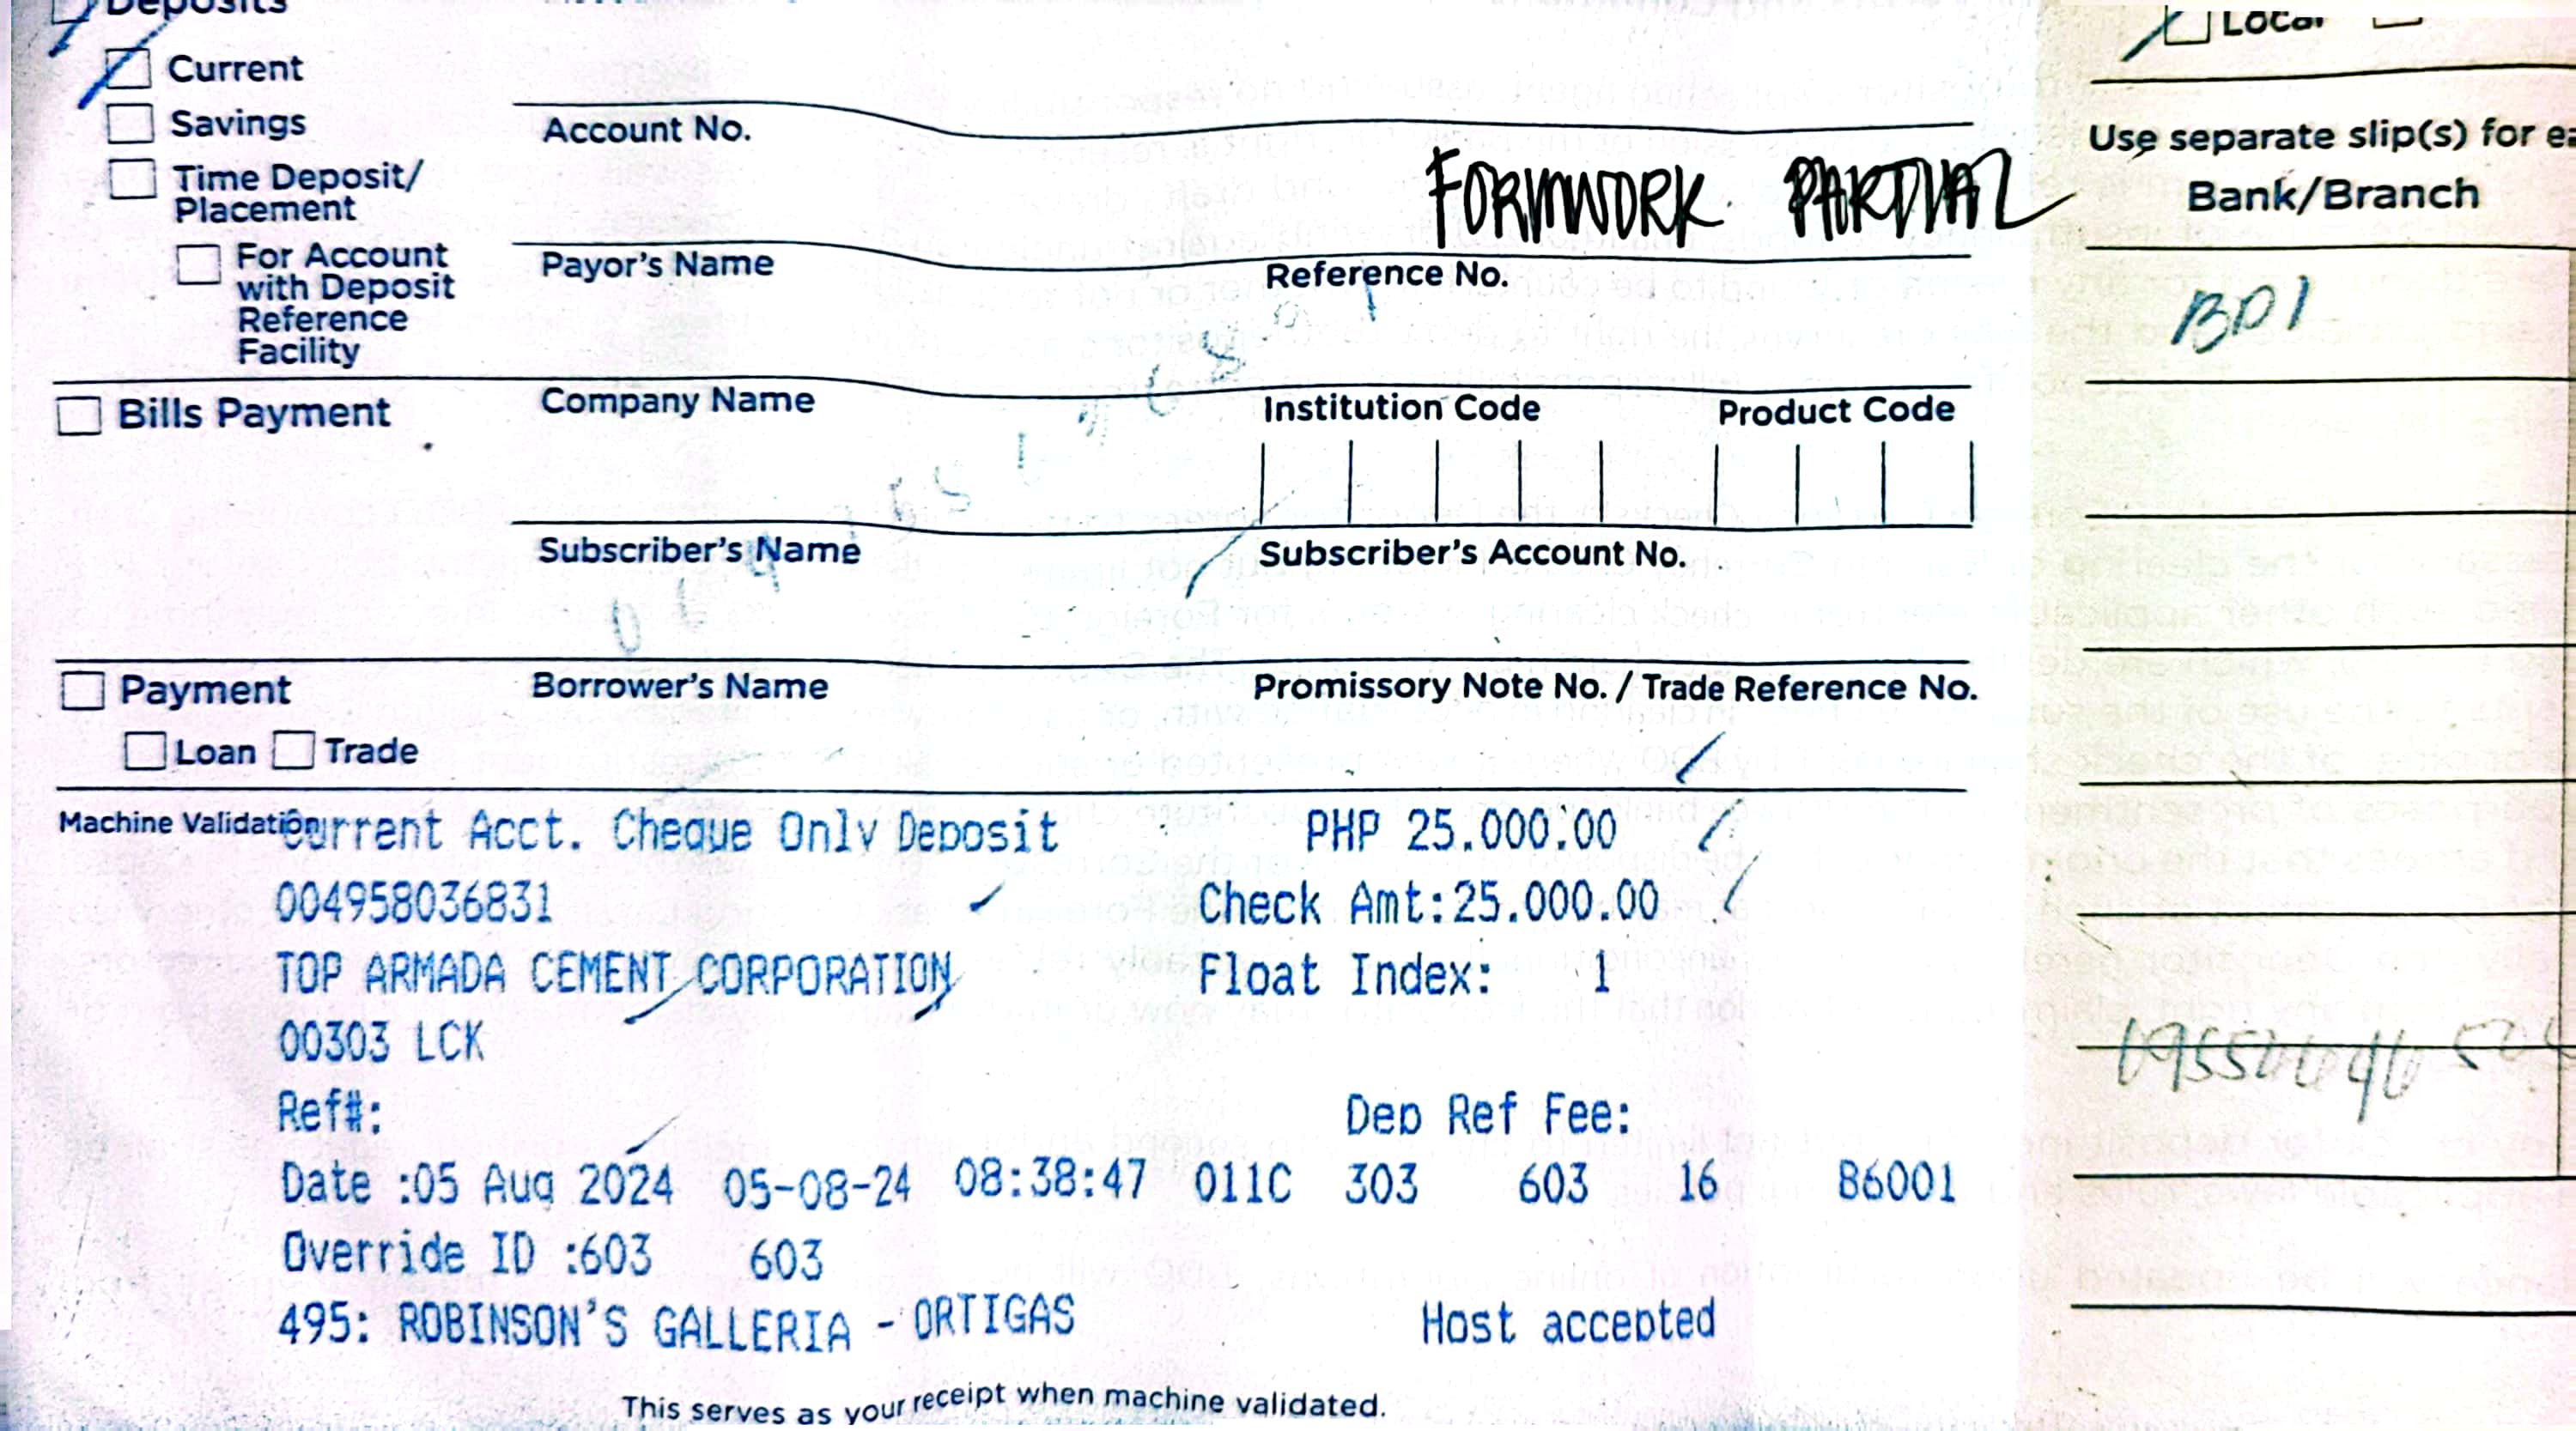 Deposits
Current
Savings
Time Deposit/
Placement
For Account
with Deposit
Reference
Facility
Account No.
FORMWORK PARTIAL
Payor's Name
Reference No.
Bills Payment
Company Name
Institution Code
Product Code
Subscriber's Name
Subscriber's Account No.
Payment
Borrower's Name
Promissory Note No. / Trade Reference No.
Loan Trade
Machine Validation
Current Acct. Cheque Only Deposit PHP 25.000.00
004958036831 Check Amt:25.000.00
TOP ARMADA CEMENT CORPORATION Float Index: 1
00303 LCK
Ref#: Dep Ref Fee:
Date :05 Aug 2024 05-08-24 08:38:47 011C 303 603 16 86001
Override ID :603 603
495: ROBINSON'S GALLERIA - ORTIGAS Host accepted
This serves as your receipt when machine validated.
Local
Use separate slip(s) for ea
Bank/Branch
BPI